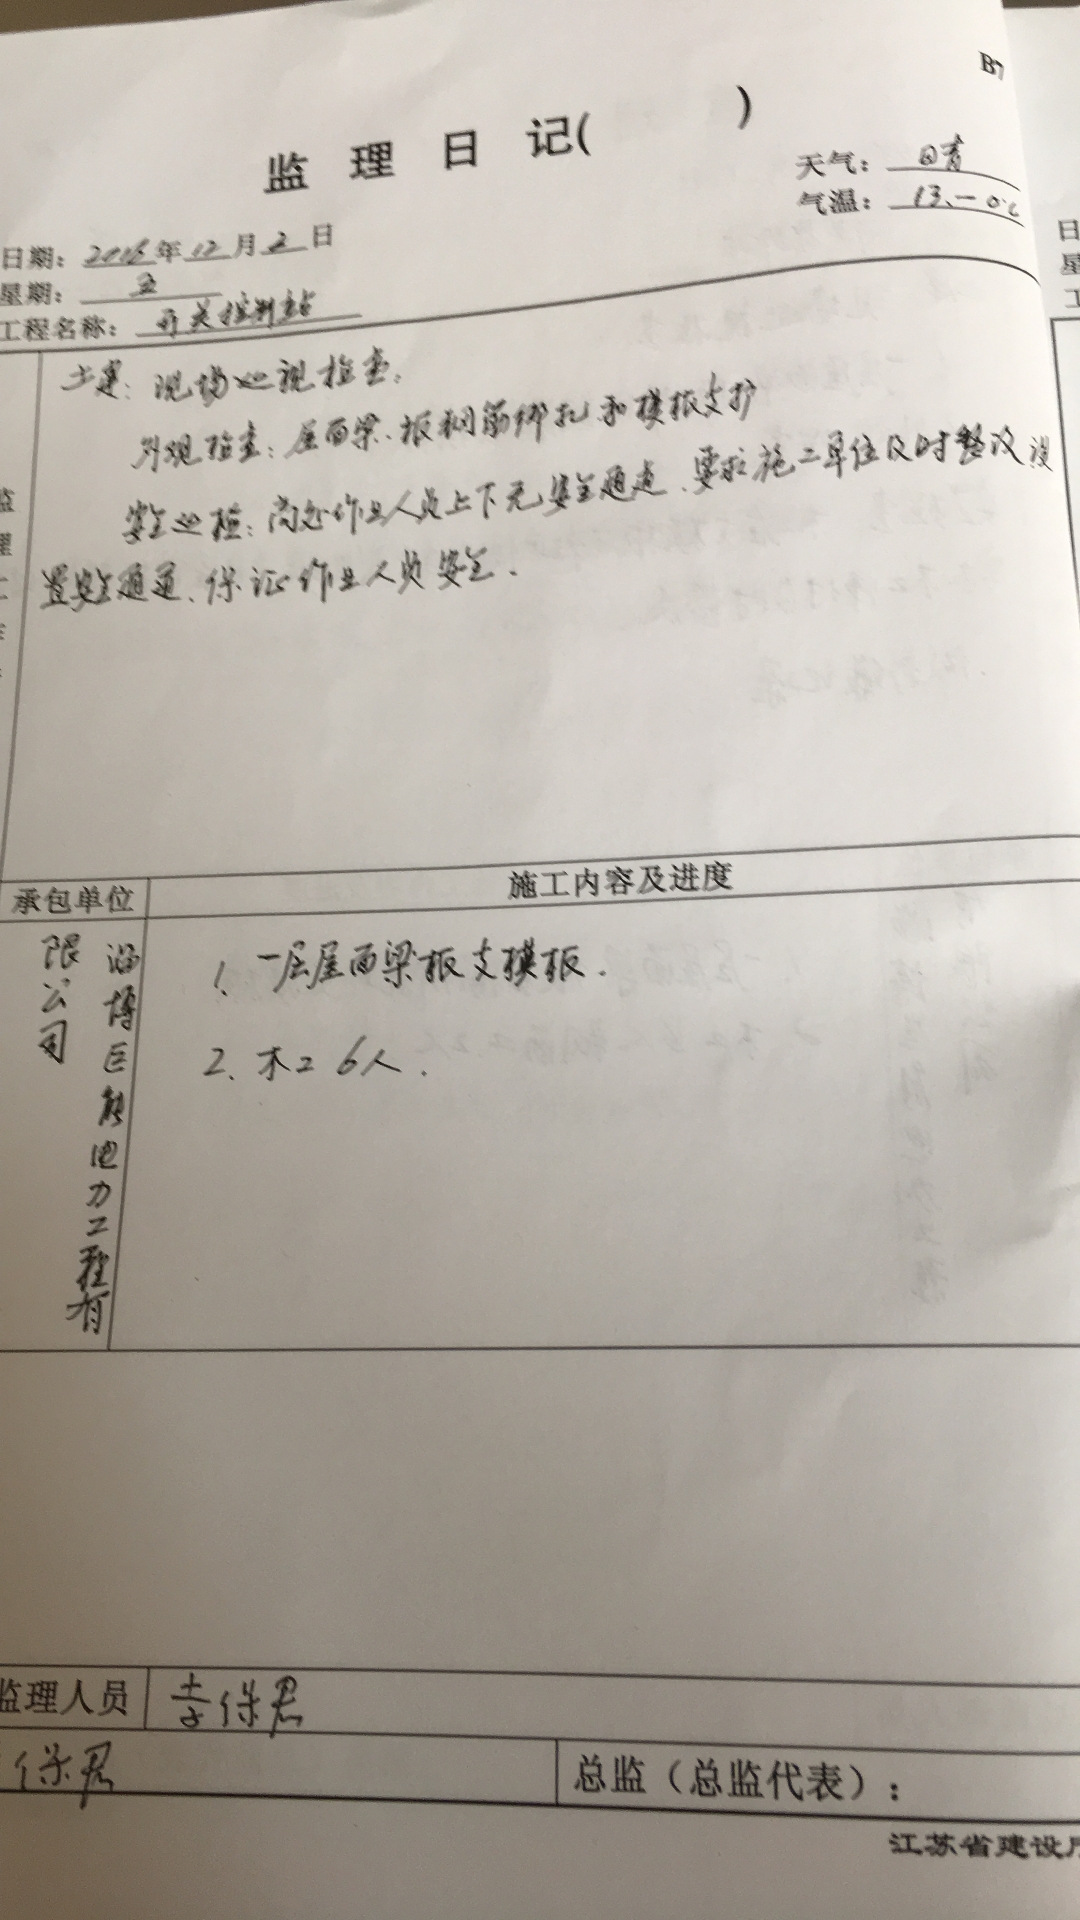 B7
监 理 日 记( )
天气: 晴
气温: 13、-0℃
日期: 2016年12月2日
星期: 五
工程名称: 开关控制站
土建: 现场巡视检查.
外观检查: 屋面梁、板钢筋绑扎和模板支护
安全巡检: 高处作业人员上下无安全通道、要求施工单位及时整改设
置安全通道、保证作业人员安全.
监
理
承包单位
施工内容及进度
淄博巨能电力工程有
限公司
1、一层屋面梁板支模板.
2、木工6人.
监理人员
李保君
保君
总监（总监代表）:
江苏省建设厅
日
星
工